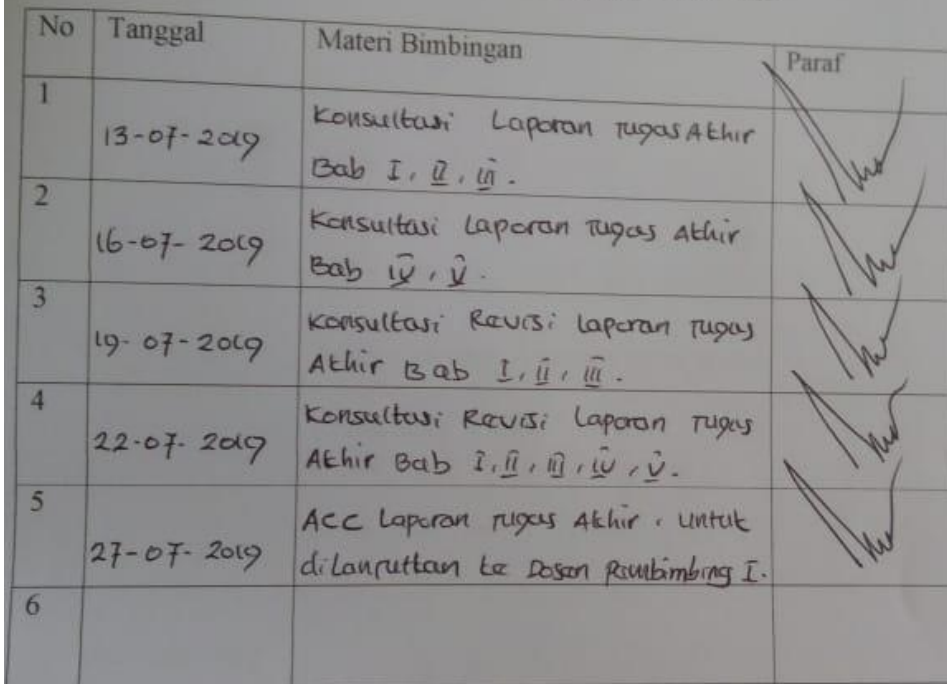 No Tanggal Materi Bimbingan Paraf
1
13-07-2019 Konsultasi Laporan Tugas Akhir
Bab I, II, III.
2
16-07-2019 Konsultasi Laporan Tugas Akhir
Bab IV, V.
3
19-07-2019 Konsultasi Revisi Laporan Tugas
Akhir Bab I, II, III.
4
22-07-2019 Konsultasi Revisi Laporan Tugas
Akhir Bab I, II, III, IV, V.
5
27-07-2019 ACC Laporan Tugas Akhir. Untuk
dilanjutkan ke Dosen Pembimbing I.
6